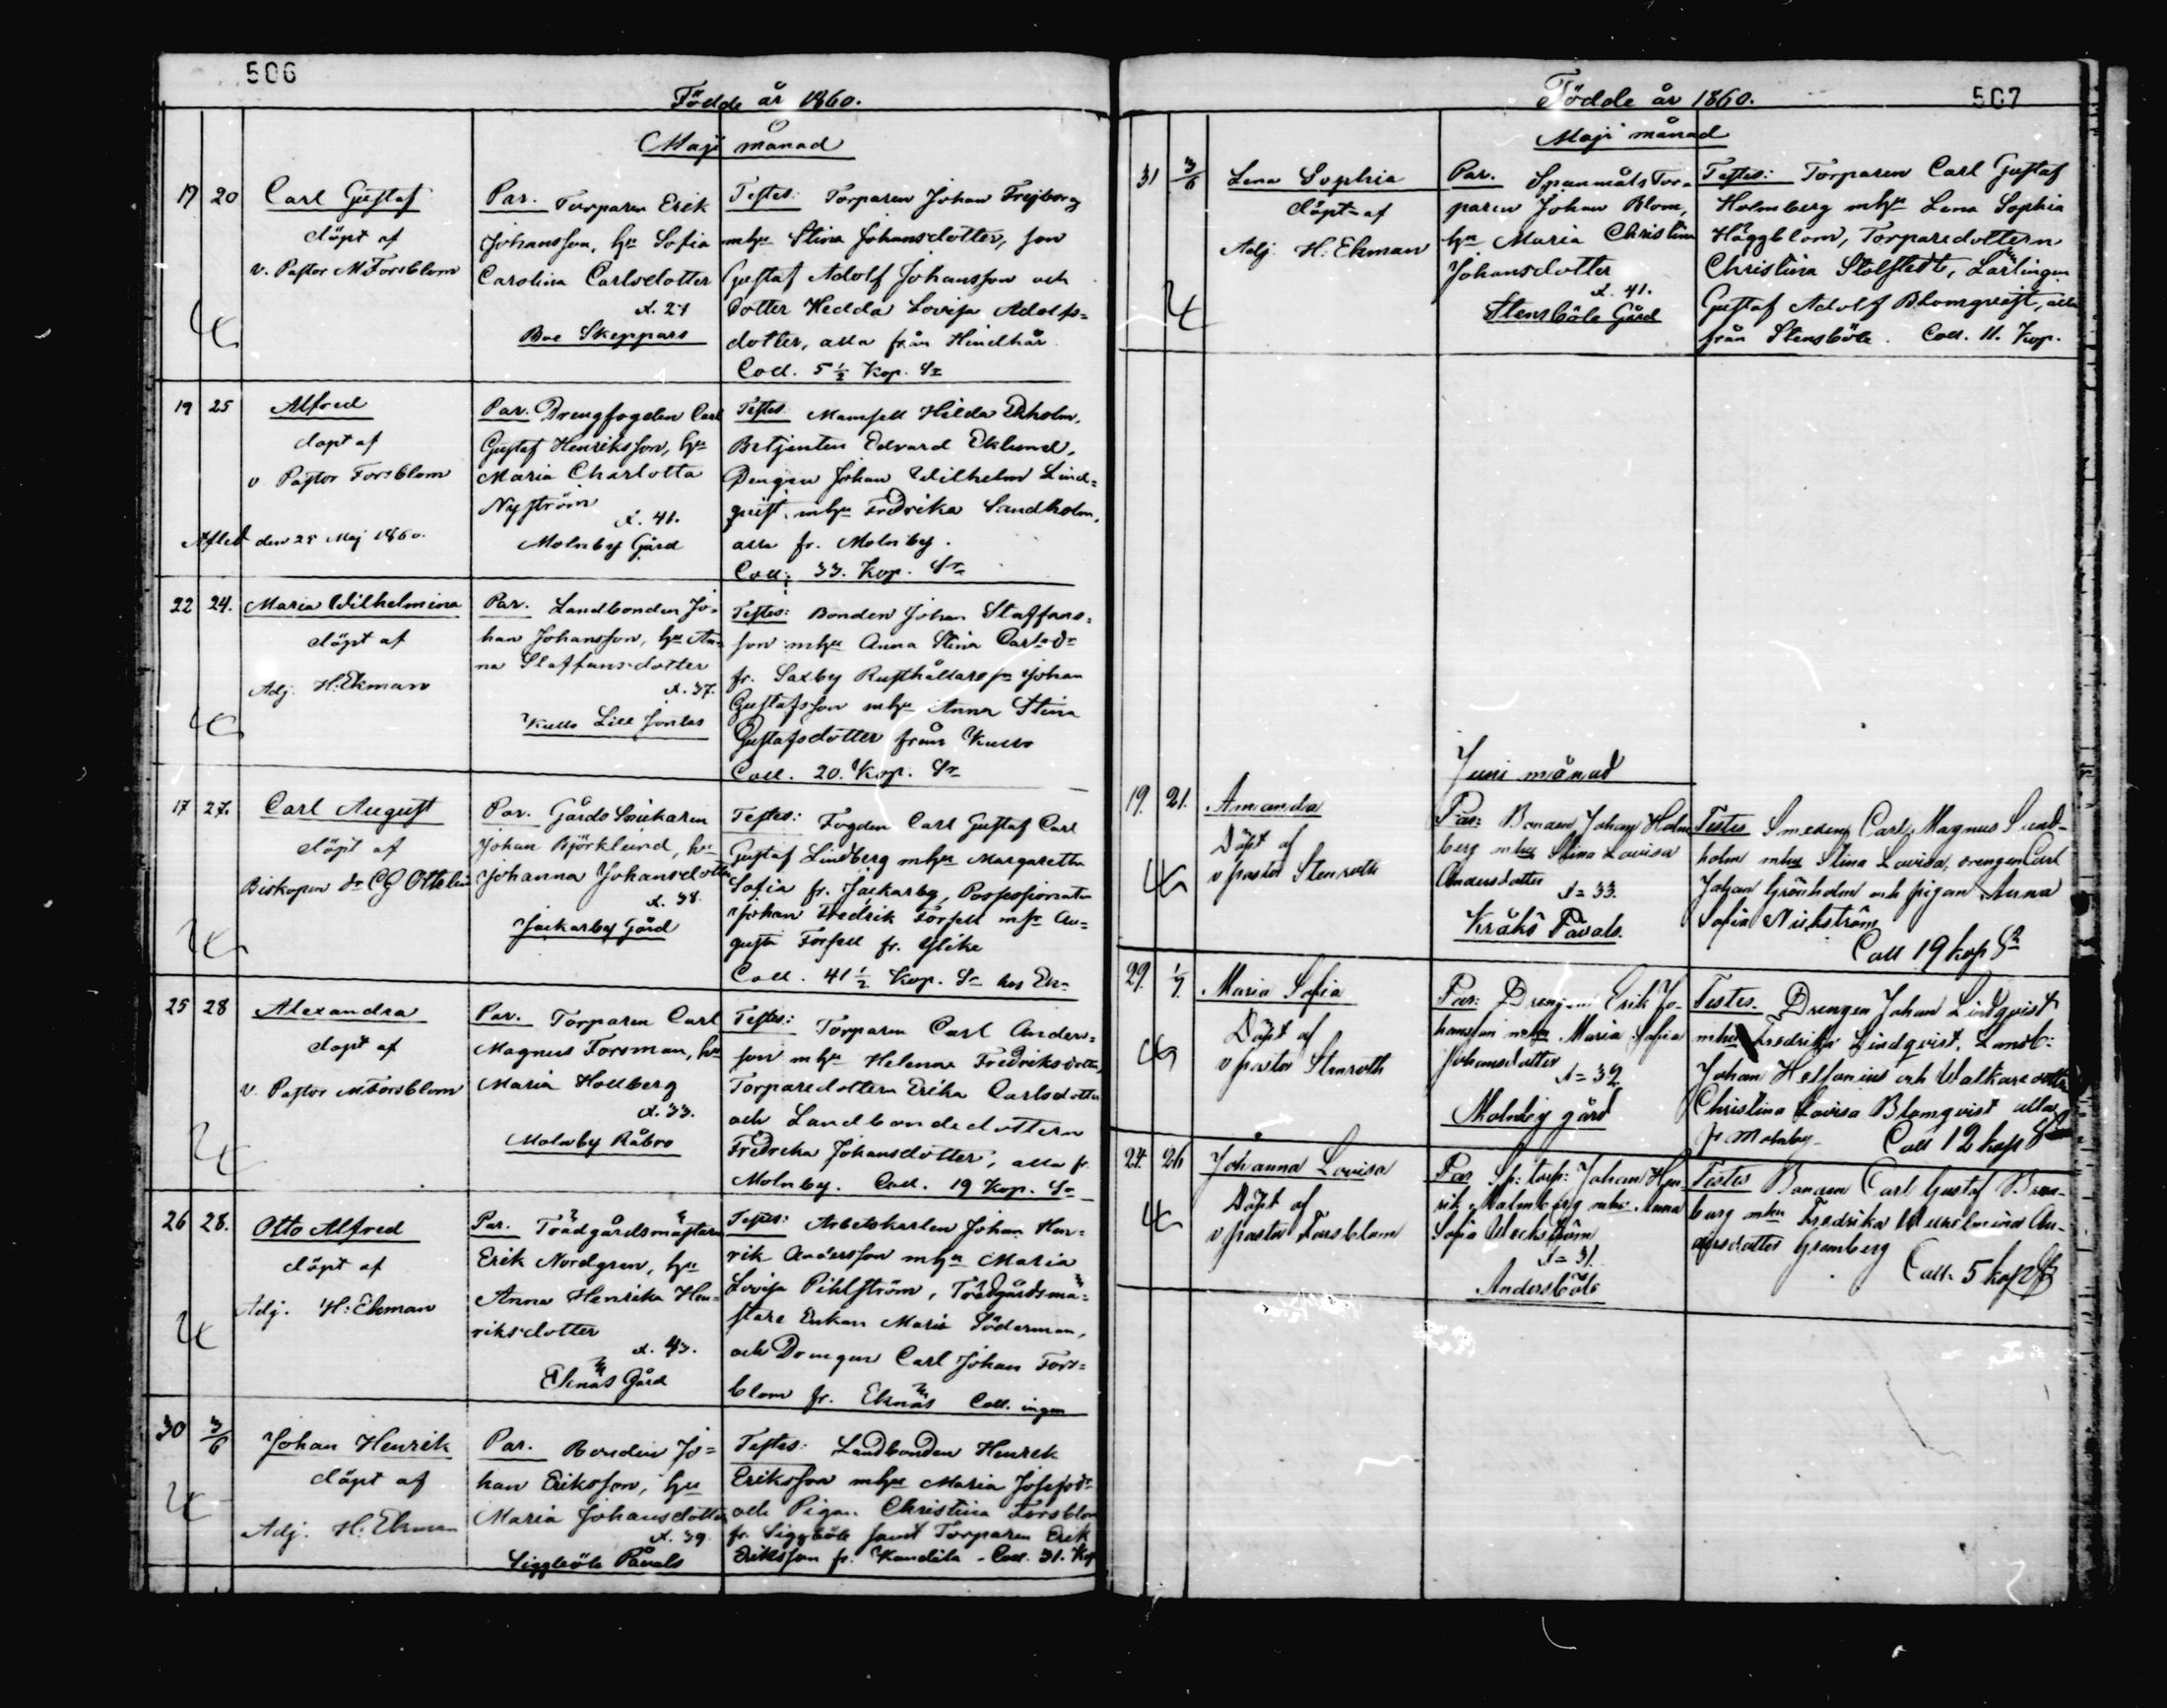 506
Födde år 1860.
Maji månad
17 20 Carl Gustaf
döpt af
v. Pastor M Forsblom
Par. Torparen Erik
Johansson, hu Sofia
Carolina Carlsdotter
Boe Skeppars
Testes: Torparen Johan Frejborg
mhu Stina Johansdotter, son
Gustaf Adolf Johansson och
dotter Hedda Lovisa Adolfs=
dotter, alla från Hindhår
Coll. 5 ½ Kop. Sr
19 25 Alfred
döpt af
v Pastor Forsblom
Afled den 25 Maj 1860.
Par. Drengfogden Carl
Gustaf Henriksson, hu
Maria Charlotta
Nyström
æt. 41.
Molnby Gård
Testes: Mamsell Hilda Ekholm,
Betjenten Edvard Eklund,
Drengen Johan Wilhelm Lind=
qvist mhu Fredrika Sandholm,
alla fr. Molnby.
Coll: 33. Kop. Sr
22 24. Maria Wilhelmina
döpt af
Adj. H: Ekman
Par. Landbonden Jo=
han Johansson, hu An=
na Staffansdotter
æt. 37.
Kullo Lill Jontas
Testes: Bonden Johan Staffans=
son mhu Anna Stina Carlsdr
fr. Saxby Rusthållares sn Johan
Gustafsson mhu Anna Stina
Gustafsdotter från Kullo
Coll. 20. Kop. Sr
17 27. Carl August
döpt af
Biskopen dr C G Ottelin
Par. Gårds Snickaren
Johan Björklund, hu
Johanna Johansdotter
æt. 38.
Jackarby Gård
Testes: Fogden Carl Gustaf Carl
Gustaf Lindberg mhu Margaretha
Sofia fr. Jackarby, Possessionaten
Johan Fredrik Forsell m fr Au=
gusta Forsell fr. Glike
Coll. 41 ½ Kop. Sr
25 28 Alexandra
döpt af
v. Pastor M Forsblom
Par. Torparen Carl
Magnus Forsman, hu
Maria Hollberg
æt. 33.
Molnby Råbro
Testes: Torparen Carl Anders=
son mhu Helena Fredriksdotter,
Torparedottern Erika Carlsdotter
och Landbondedottern
Fredrika Johansdotter, alla fr.
Molnby. Coll. 19 Kop. Sr
26 28. Otto Alfred
döpt af
Adj. H: Ekman
Par. Trädgårdsmästaren
Erik Nordgren, hu
Anna Henrika Hen=
riksdotter
æt. 43.
Eknäs Gård
Testes: Arbetskarlen Johan Hen=
rik Andersson mhu Maria
Lovisa Pihlström, Trädgårdsmä=
stare Enkan Maria Söderman,
och Drengen Carl Johan Fors=
blom fr. Eknäs Coll. ingen
30 3/6 Johan Henrik
döpt af
Adj. H: Ekman
Par. Bonden Jo=
han Eriksson, hu
Maria Johansdotter
æt. 39.
Siggböle Påvals
Testes: Landbonden Henrik
Eriksson mhu Maria Josefsdr
och Pigan Christina Forsblom
fr. Siggböle samt Torparen Erik
Eriksson fr. Kandila - Coll. 31. Kop
Födde år 1860.
507
Maji månad
31 3/6 Lena Sophia
döpt af
Adj. H: Ekman
Par. Spanmåls Tor=
paren Johan Blom,
hu Maria Christina
Johansdotter
æt. 41.
Stensböle Gård
Testes: Torparen Carl Gustaf
Holmberg mhu Lena Sophia
Häggblom, Torparedottern
Christina Stolstedt, Lärlingen
Gustaf Adolf Blomqvist, alla
från Stensböle. Coll. 11. Kop.
Juni månad
19. 21. Amanda
Döpt af
v pastor Stenroth
Par: Bonden Johan Holm
berg mhu Stina Lovisa
Andersdotter
æt= 33.
Kråkö Påvals.
Testes Smeden Carl Magnus Sund-
holm mhu Stina Lovisa, drengen Carl
Johan Grönholm och pigan Anna
Sofia
Coll 19 kop Sr
29. 1/7. Maria Sofia
Döpt af
v pastor Stenroth
Par: Drengen Erik Jo-
hansson mhu Maria Sofia
Johansdotter
æt= 32.
Molnby gård
Testes. Drengen Johan Lindqvist
mhu Fredrika Lindqvist, Landb:
Johan Helsenius och Walkaredotter
Christina Lovisa Blomqvist alla
fr Molnby - Coll 12 kop Sr
24. 26 Johanna Lovisa
Döpt af
v pastor Forsblom
Par Sp: torp: Johan Hen-
rik Malmberg mhu Anna
Sofia Weckström
æt= 31.
Andersböle
Testes Bonden Carl Gustaf
berg mhu Fredrika Wilhelmina An-
dersdotter Gramberg
Coll. 5 kop Sr